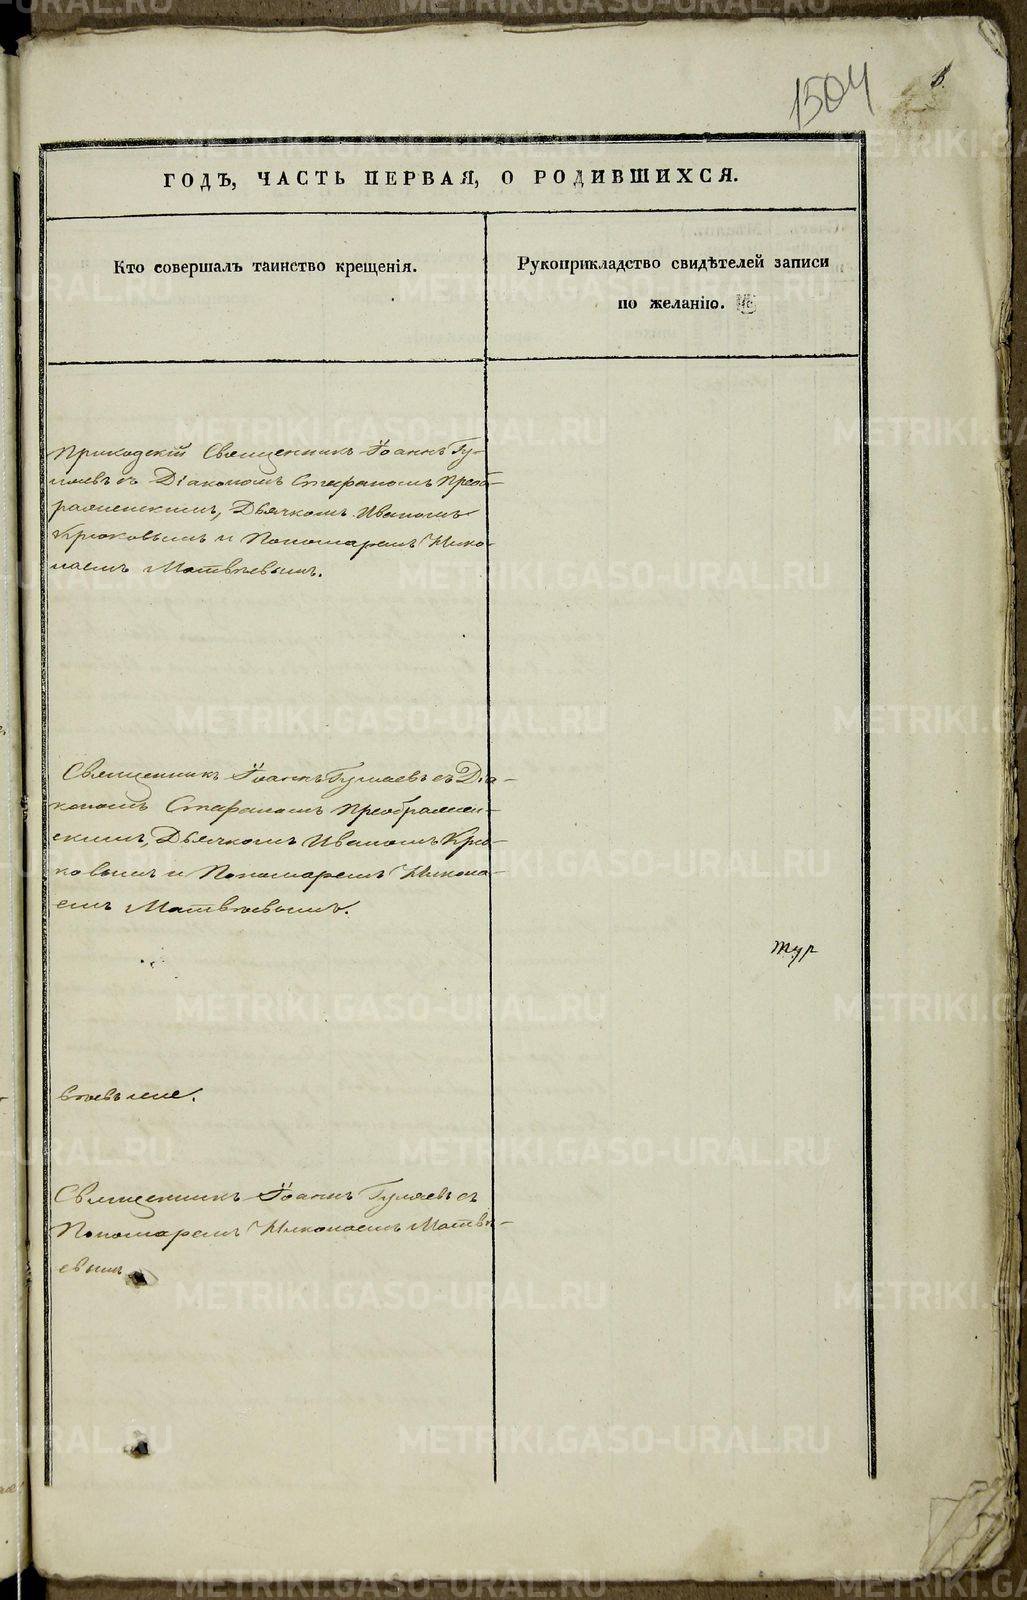 1504
ГОДЪ, ЧАСТЬ ПЕРВАЯ, О РОДИВШИХСЯ.
Кто совершалъ таинство крещенія.
Рукоприкладство свидѣтелей записи
по желанію.
Приходскій Священникъ Іоаннъ Гу-
ляевъ съ Діакономъ Стефаномъ Преоб-
раженскимъ, Дьячкомъ Иваномъ
Крюковымъ и Пономаремъ Нико-
лаемъ Матвѣевымъ.
Священникъ Іоаннъ Гуляевъ съ Діа-
кономъ Стефаномъ Преображен-
скимъ, Дьячкомъ Иваномъ Крю-
ковымъ и Пономаремъ Никола-
емъ Матвѣевымъ.
Священникъ Іоаннъ Гуляевъ съ
Пономаремъ Николаемъ Матвѣ-
евымъ
METRIKI.GASO-URAL.RU